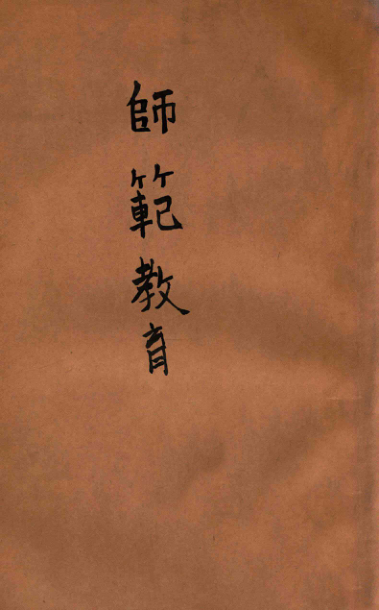 師範教育